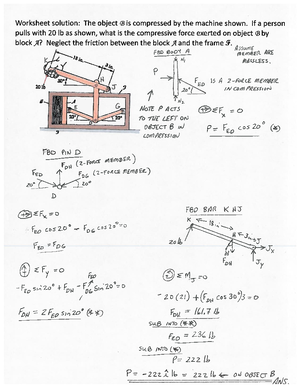 Worksheet solution: The object B is compressed by the machine shown. If a person
pulls with 20 lb as shown, what is the compressive force exerted on object B by
block A? Neglect the friction between the block A and the frame F.
FBD BODY A
ASSUME
MEMBER ARE
MASSLESS.
20 lb
P
F_ED
20°
N₁
N₂
IS A 2-FORCE MEMBER
IN COMPRESSION
NOTE P ACTS
TO THE LEFT ON
OBJECT B IN
COMPRESSION
ΣFx = 0
P = F_ED cos 20° (*)
FBD PIN D
F_DH (2-FORCE MEMBER)
F_ED
F_DG (2-FORCE MEMBER)
20°
20°
D
ΣFx = 0
F_ED cos 20° - F_DG cos 20° = 0
F_ED = F_DG
ΣFy = 0
F_ED
- F_ED sin 20° + F_DH - F_DG sin 20° = 0
F_DH = 2 F_ED sin 20° (**)
FBD BAR KHJ
K
18 in
H
J
Jx
20 lb
F_DH
Jy
ΣM_J = 0
- 20 (21) + (F_DH cos 30°) 3 = 0
F_DH = 161.7 lb
SUB INTO (**)
F_ED = 236 lb
SUB INTO (*)
P = 222 lb
P = -222 î lb = 222 lb ← ON OBJECT B
ANS.